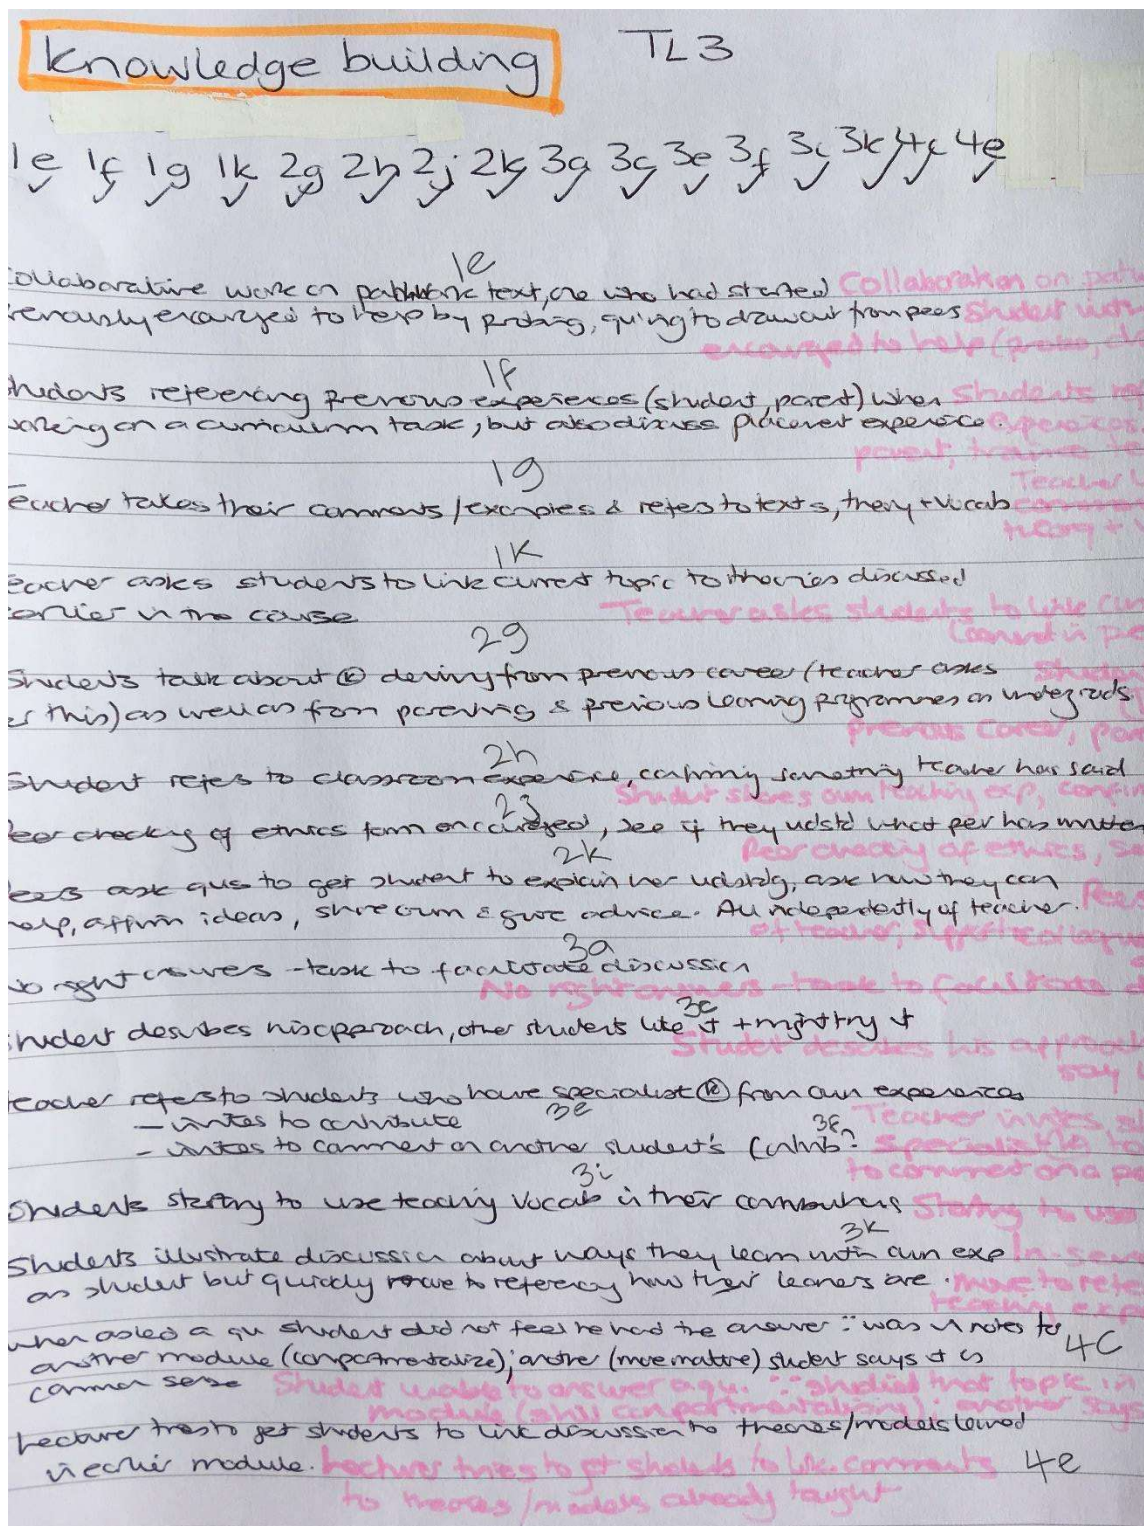 Knowledge building TL3
1e 1f 1g 1k 2g 2h 2j 2k 3a 3c 3e 3f 3i 3k 4c 4e
1e
ollaborative work on patchwork text, one who had started Collaboration on
reviously encouraged to help by probing, qu'ing to draw out from peers Student
encouraged to help (probe,
1f
tudents referencing previous experiences (student, parent) when Students
orking on a curriculum task, but also discuss placement experience. experiences
parent, trainee
1g
Teacher
eacher takes their comments / examples & refers to texts, theory + vocab
theory +
1k
eacher asks students to link current topic to theories discussed
earlier in the course Teacher asks students to link
learned in
2g
Students talk about (k) deriving from previous career (teacher asks Student
this) as well as from parenting & previous learning programmes as undergrads.
previous career,
2h
Student refers to classroom experience, confirming something teacher has said
2j Student shares own teaching exp,
eer checking of ethics form encouraged, see if they udstd what peer has written
2k Peer checking of ethics,
eers ask qus to get student to explain her udstdg, ask how they can
elp, affirm ideas, share own & give advice. All independently of teacher. Peers
of teacher; support
3a
No right answers - task to facilitate discussion
No right answers - task to facilitate
3c
tudent describes his approach, other students like it + might try it
Student describes his approach
say
teacher refers to students who have specialist (k) from own experiences
- invites to contribute 3e Teacher invites
- invites to comment on another student's contrib? 3f
to comment on a
3i
Students starting to use teaching vocab in their contributions Starting to use
3k
Students illustrate discussion about ways they learn with own exp
as student but quickly move to referencing how their learners are. move to
teaching exp
when asked a qu student did not feel he had the answer ∵ was in notes for
another module (compartmentalize); another (more mature) student says it is 4C
common sense Student unable to answer a qu. ∵ studied that topic in
module (still compartmentalising); another says
Lecturer tries to get students to link discussion to theories/models learned
in earlier module. Lecturer tries to get students to link comments 4e
to theories/models already taught